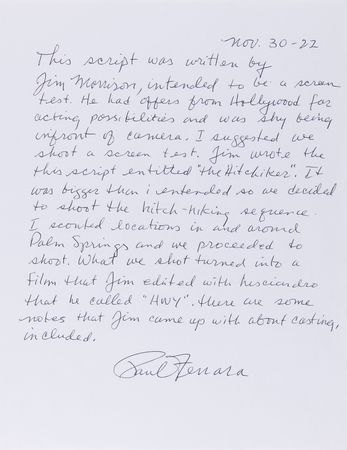 Nov. 30-22
This script was written by
Jim Morrison, intended to be a screen
test. He had offers from Hollywood for
acting possibilities and was shy being
infront of camera. I suggested we
shoot a screen test. Jim wrote the
this script entitled "the Hitchiker". It
was bigger than i entended so we decided
to shoot the hitch-hiking sequence.
I scouted locations in and around
Palm Springs and we proceeded to
shoot. What we shot turned into a
film that Jim edited with hisciandro
that he called "HWY". there are some
notes that Jim came up with about casting,
included.
Paul Ferrara